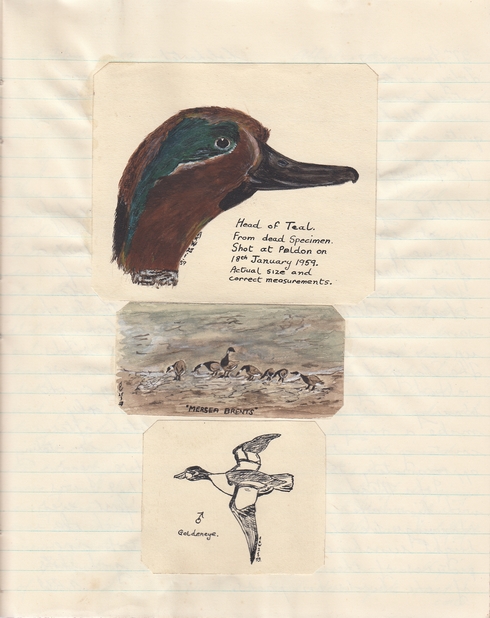 Head of Teal.
From dead Specimen.
Shot at Peldon on
18th January 1959.
Actual size and
correct measurements.
"MERSEA BRENTS"
♂
Goldeneye.